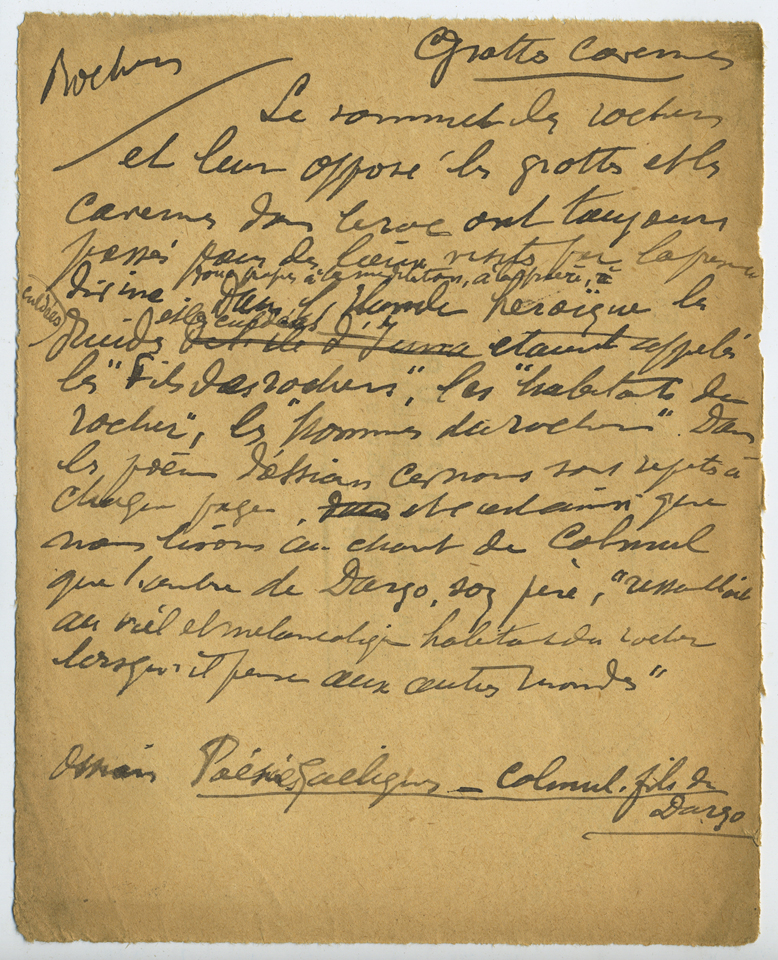 Rochers
Grottes Cavernes
Le sommet des rochers
et leur opposé les grottes et les
cavernes dans le roc ont toujours
passés pour des lieux visités par la pensée
divine. pour propres à la méditation, à la prière, à
culdées
Dans le monde héroïque les
et les culdées
druides de l'île d'Iona etaient appelés
les "Fils des rochers", les "habitants du
rocher", les "hommes du rocher". Dans
les poëmes d'Ossian ces noms sont repetés à
chaque page, dans et c'est ainsi que
nous lisons au chant de Colmul
que l'ombre de Dargo, son père, "ressemblait
au vieil et melancolique habitant du rocher
lorsqu'il pense aux autres mondes"
Ossian Poésies Gaeliques _ Colmul. fils de
Dargo